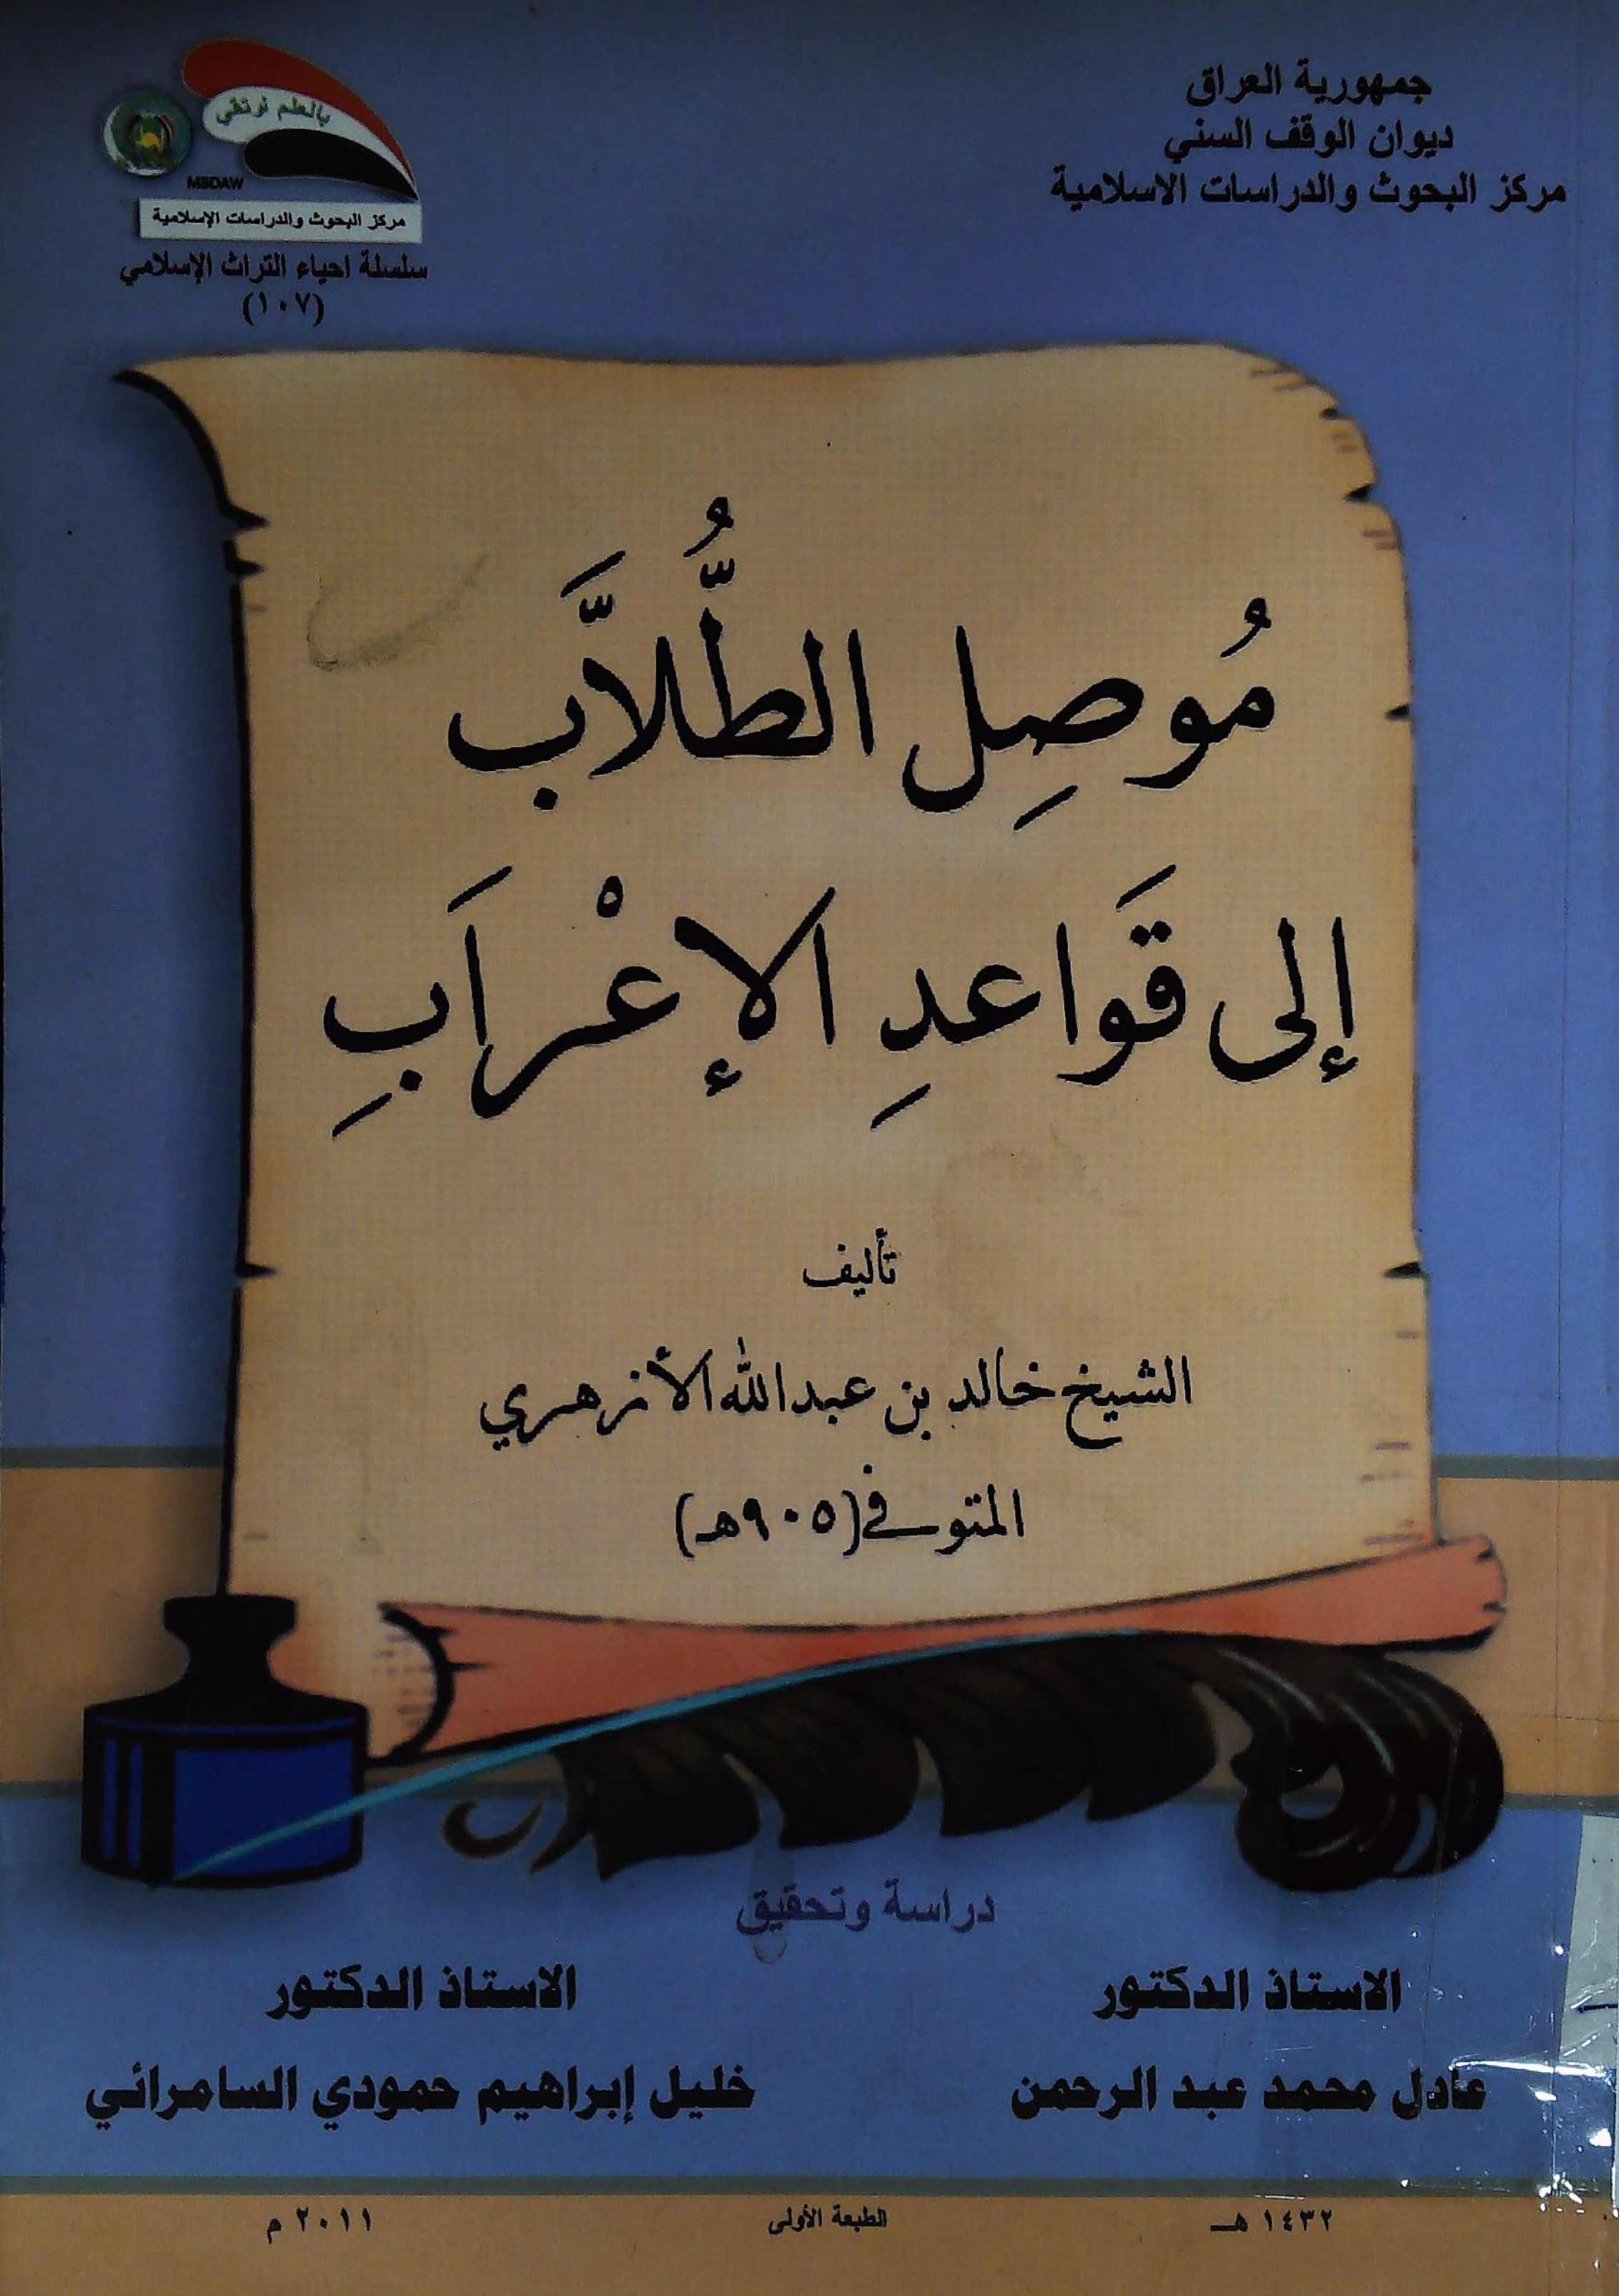 جمهورية العراق
ديوان الوقف السني
مركز البحوث والدراسات الاسلامية
بالعلم نرتقي
MBDAW
مركز البحوث والدراسات الإسلامية
سلسلة احياء التراث الإسلامي
(١٠٧)
مُوصِل الطُّلاَّب
إلى قَواعدِ الإعْرَابِ
تأليف
الشيخ خالد بن عبدالله الأزهري
المتوفى (٩٠٥هـ)
دراسة وتحقيق
الاستاذ الدكتور
عادل محمد عبد الرحمن
الاستاذ الدكتور
خليل إبراهيم حمودي السامرائي
١٤٣٢ هـ
الطبعة الأولى
٢٠١١ م